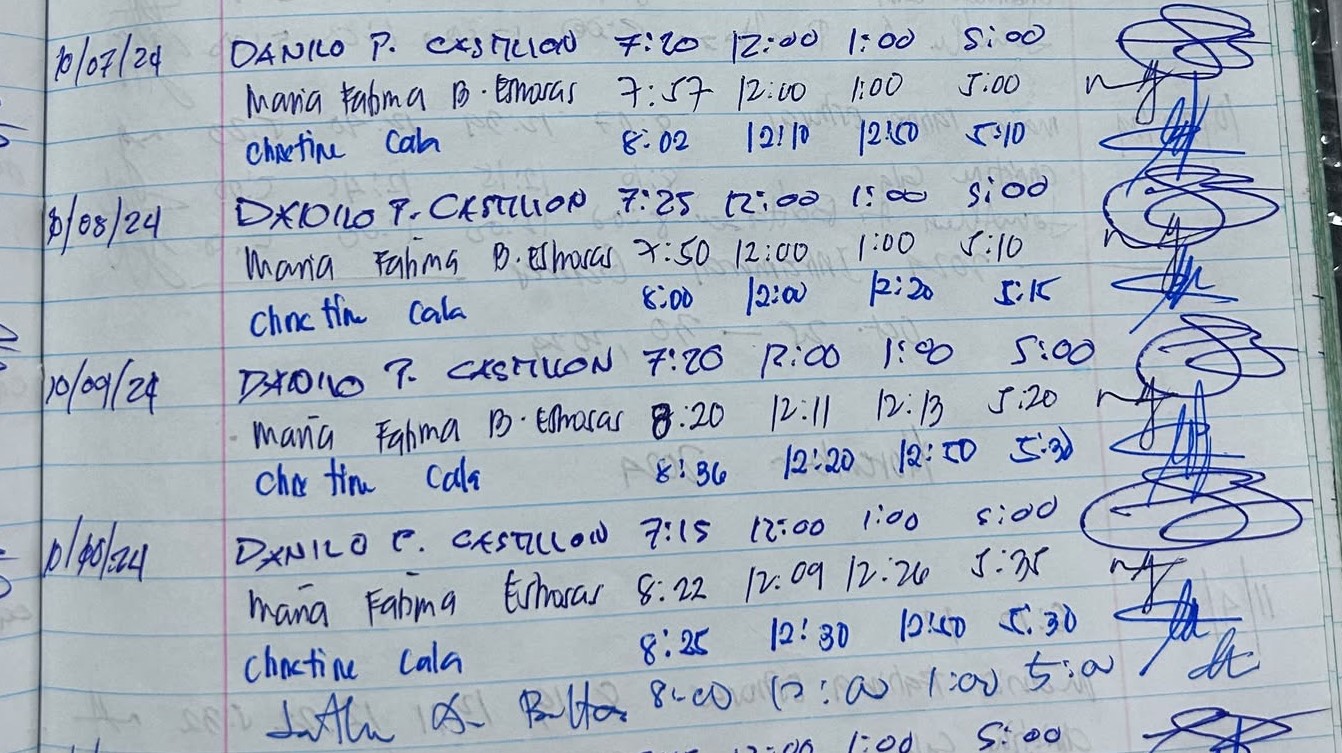 10/07/24 DANILO P. CASTILLON 7:20 12:00 1:00 5:00
Maria Fatima B. Esmoras 7:57 12:00 1:00 5:00
Christine Cala 8:02 12:10 12:50 5:10
10/08/24 DANILO P. CASTILLON 7:25 12:00 1:00 5:00
Maria Fatima B. 7:50 12:00 1:00 5:10
Christine Cala 8:00 12:00 12:20 5:15
10/09/24 DANILO P. CASTILLON 7:20 12:00 1:00 5:00
Maria Fatima B. 8:20 12:11 12:13 5:20
Christine Cala 8:36 12:20 12:50 5:30
10/10/24 DANILO P. CASTILLON 7:15 12:00 1:00 5:00
Maria Fatima 8:22 12:09 12:26 5:35
Christine Cala 8:25 12:30 12:50 5:30
8:00 12:00 1:00 5:00
12:00 1:00 5:00